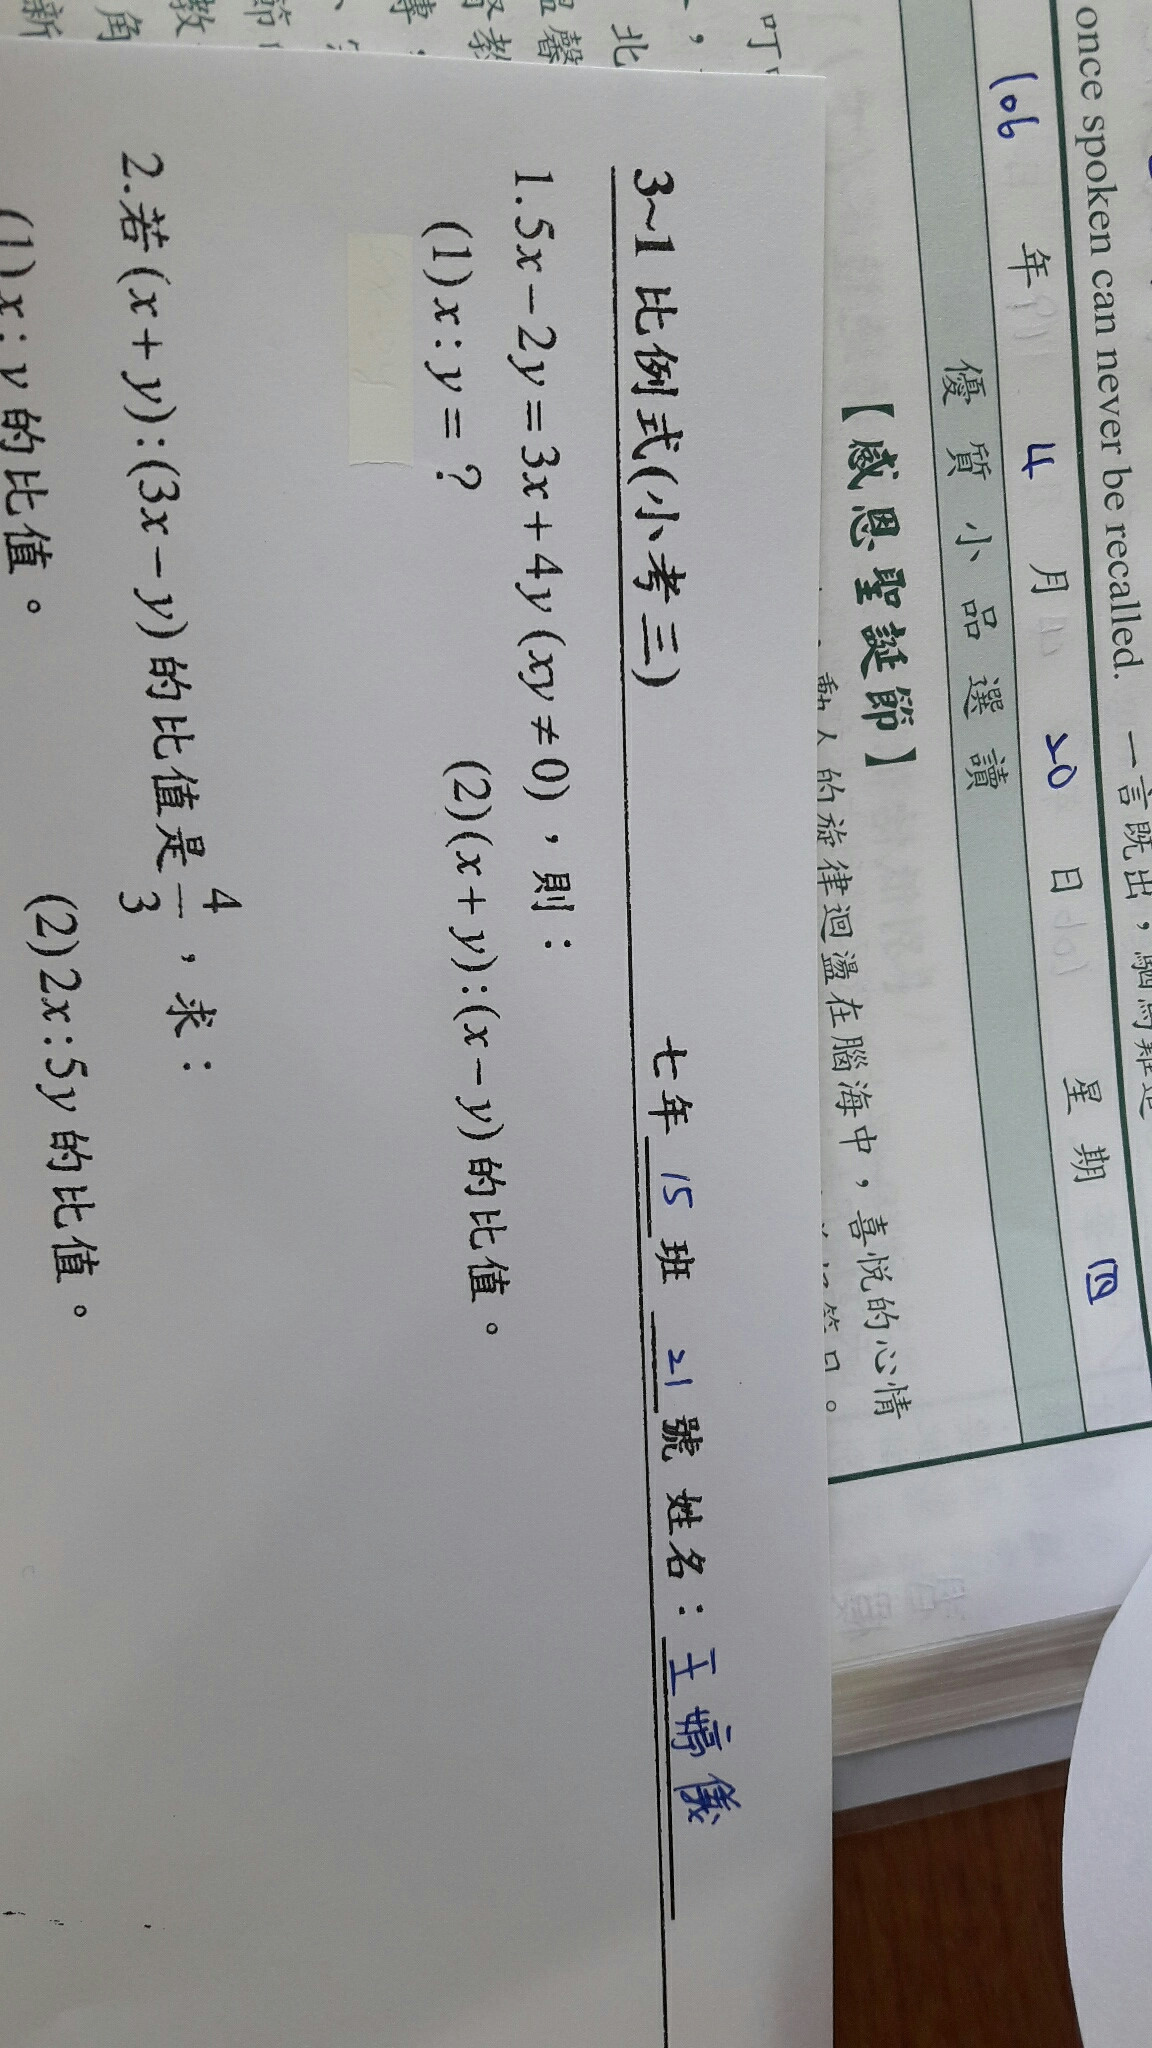 once spoken can never be recalled. 一言既出，駟馬難追
106 年 4 月 20 日 星期 四
優質小品選讀
【感恩聖誕節】
動人的旋律迴盪在腦海中，喜悅的心情
3~1 比例式(小考三)
七年 15 班 21 號 姓名：王婷儀
1.5x－2y＝3x＋4y(xy≠0)，則：
(1)x：y＝？ (2)(x＋y)：(x－y)的比值。
2.若(x＋y)：(3x－y)的比值是4/3，求：
(1)x：y的比值。 (2)2x：5y的比值。